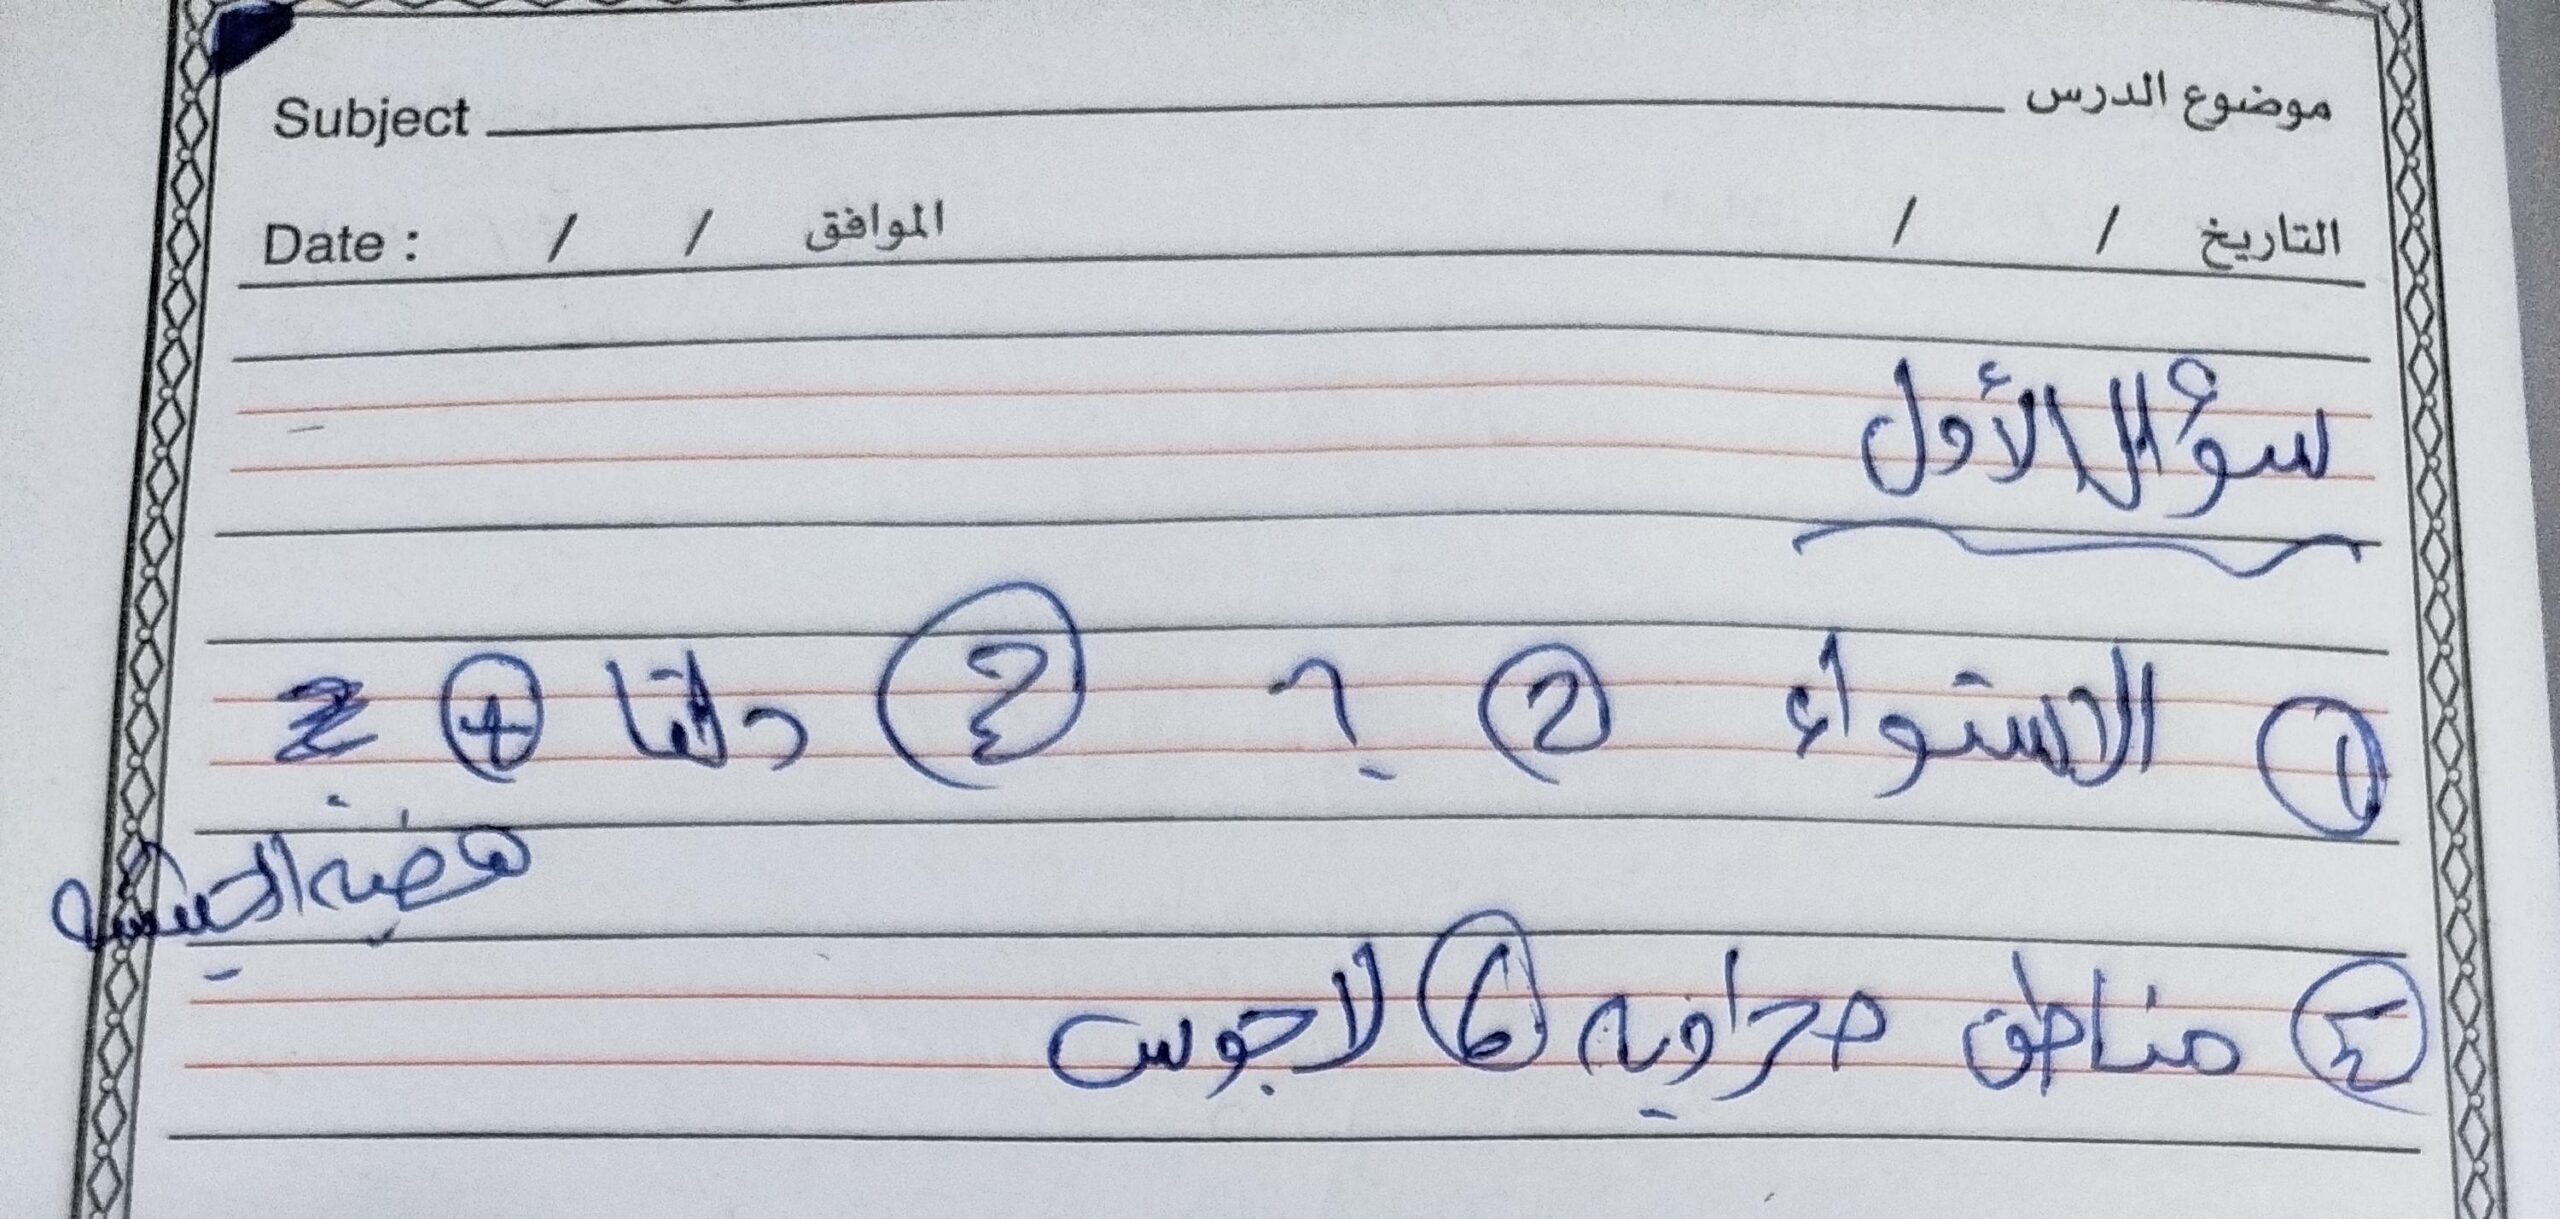 Subject موضوع الدرس
Date : / / الموافق / / التاريخ
سؤال الأول
① الاستواء ② ؟ ③ دلتا ④
هضبه الحبشه
⑤ مناطق حراويه ⑥ لاجوس